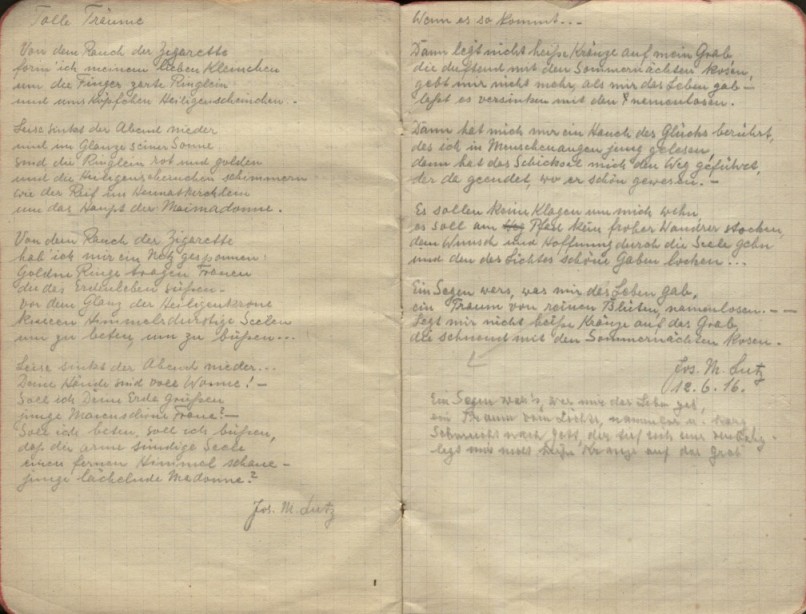 Tolle Träume
Von dem Rauch der Zigarette
form' ich meinem lieben Kleinchen
um die Finger zarte Ringlein
und ums Köpfchen Heiligenscheinchen.
Leise sinkt der Abend nieder
und im Glanze seiner Sonne
sind die Ringlein rot und golden
und die Heiligenscheinchen schimmern
wie der Reif im Heimatkirchlein
um das Haupt der Maimadonne.
Von dem Rauch der Zigarette
hab' ich mir ein Netz gesponnen:
Goldne Ringe tragen Frauen
die das Erdenleben büßen –
vor dem Glanz der Heiligenkrone
knieen himmelsdurstige Seelen
um zu beten, um zu büßen...
Leise sinkt der Abend nieder...
Deine Hände sind voll Wonne! –
Soll ich Deine Erde grüßen
junge
Soll ich beten, soll ich büßen,
daß die arme sündige Seele
einen fernen Himmel schaue –
junge lächelnde Madonne?
Jos. M. Lutz
Wenn es so kommt...
Dann legt nicht heiße Kränze auf mein Grab
die duftend mit den Sommernächten kosen,
gebt mir nicht mehr, als mir das Leben gab –
laßt es versinken mit den Namenlosen.
Dann hat mich nur ein Hauch des Glücks berührt,
das ich in Menschenaugen jung gelesen,
dann hat das Schicksal mich den Weg geführet,
der da geendet, wo er schön gewesen. –
Es sollen keine Klagen um mich wehn
es soll am Pfad kein froher Wandrer stocken,
dem Wunsch und Hoffnung durch die Seele gehn
und den des Lichtes schöne Gaben locken...
Ein Segen wars, was mir das Leben gab,
ein Traum von reinen Blüten, namenlosen. – –
Legt mir nicht heiße Kränze auf das Grab,
die sehnend mit den Sommernächten kosen.
Jos. M. Lutz
12.6.16.
Ein Segen war's, was mir das Leben gab,
ein Traum vom Lichte, namenlos u.
Sehnsucht nach Gott, der tief sich mir
legt mir nicht heiße Kränze auf das Grab